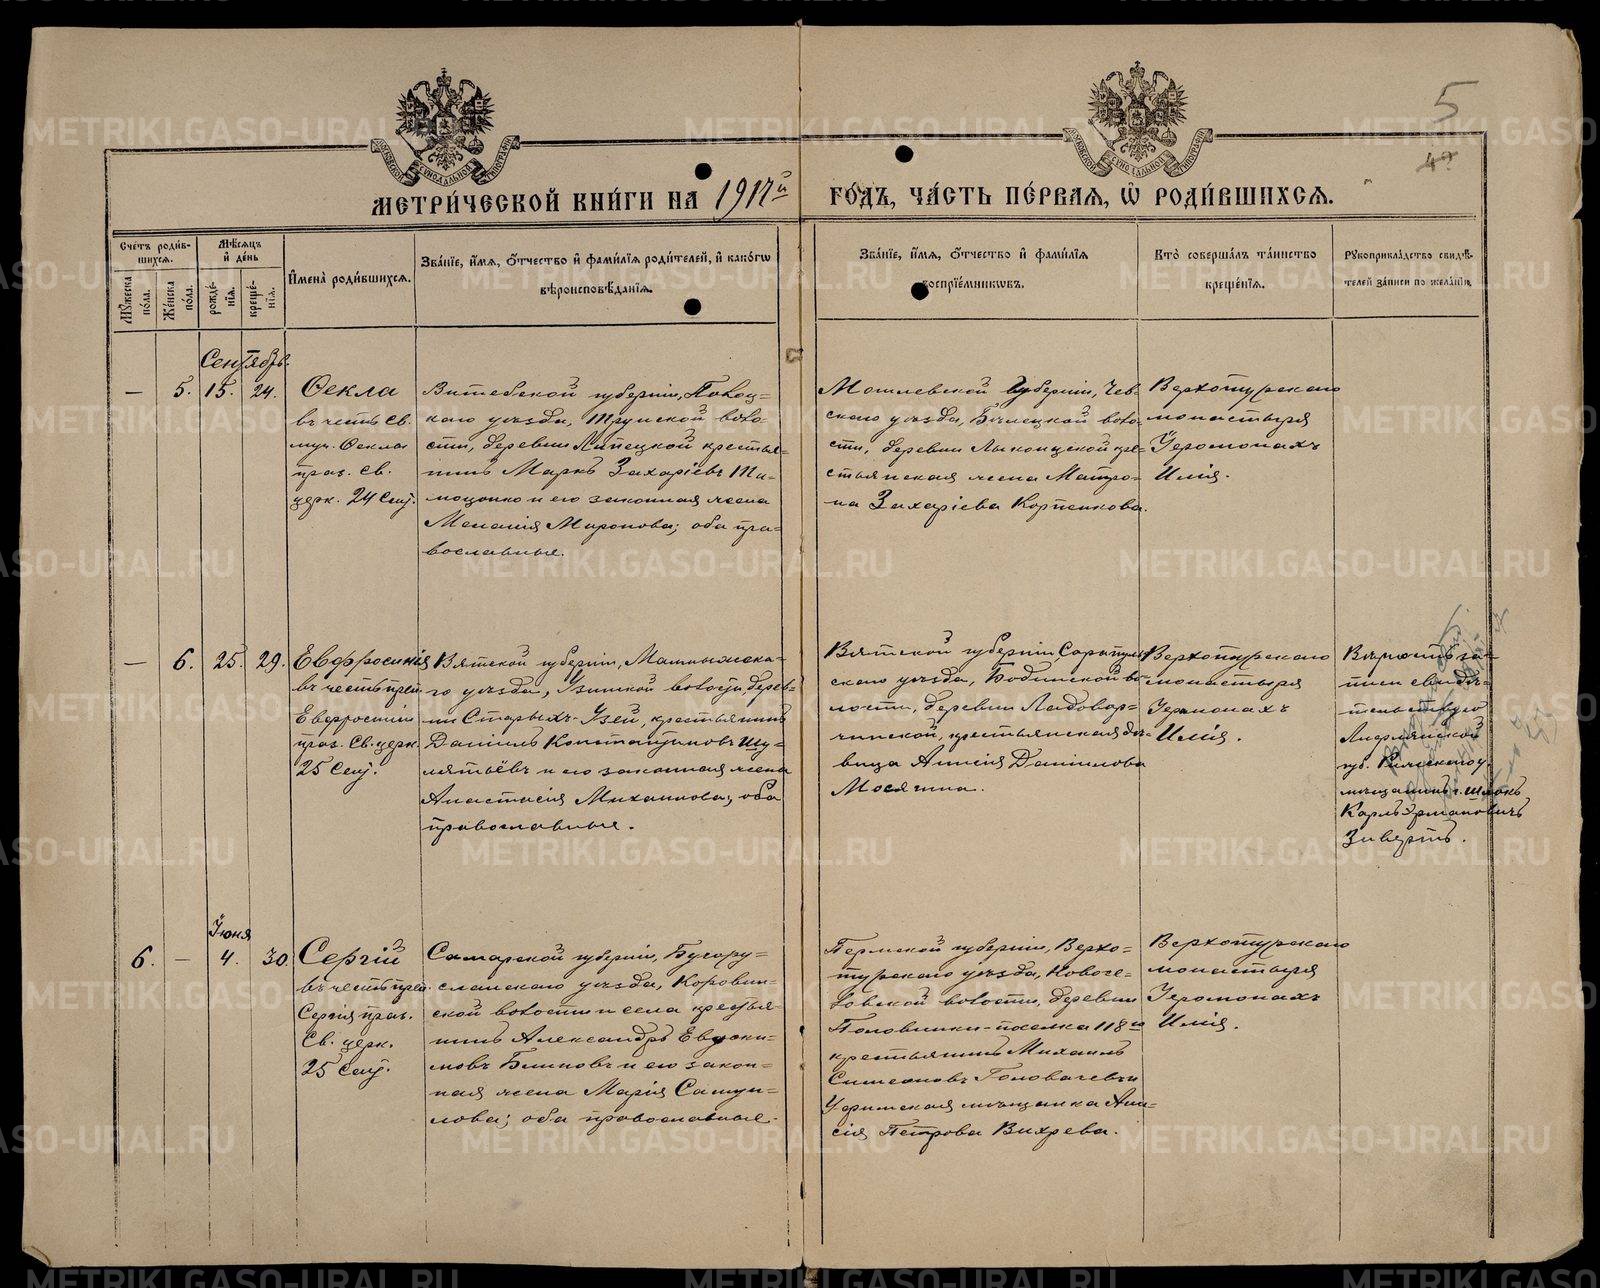 5
4
МЕТРИ́ЧЕСКОЙ КНИ́ГИ НА 1917й ГО́ДЪ, ЧА́СТЬ ПЕ́РВАЯ, Ѡ҆ РОДИ́ВШИХСЯ.
Сче́тъ роди́в-
шихся.
Мꙋ́жеска по́ла.
Же́нска по́ла.
Мѣ́сяцъ и҆ де́нь
рожде́нїя.
креще́нїя.
И҆мена̀ роди́вшихся.
Зва́нїе, и҆́мя, ѻ҆́тчество и҆ фами́лїя роди́телей, и҆ како́гѡ
вѣроисповѣ́данїя.
Зва́нїе, и҆́мя, ѻ҆́тчество и҆ фами́лїя
воспрїе́мникѡвъ.
Кто̀ соверша́лъ та́инство
креще́нїя.
Рꙋкоприкла́дство свидѣ́-
телей за́писи по жела́нїю.
Сентябрь.
—
5.
15.
24.
Ѳекла
въ честь св.
муч. Ѳеклы
праз. св.
церк. 24 Сент.
Витебской губерніи, Полоц-
каго уѣзда,
воло-
сти, деревни Липецкой крестья-
нинъ Маркъ Захаріевъ Ти-
мощенко и его законная жена
Меланія Миронова; оба пра-
вославные.
Могилевской губерніи,
скаго уѣзда,
воло-
сти, деревни
кре-
стьянская жена Матро-
на Захаріева Корпенкова.
Верхотурскаго
монастыря
Іеромонахъ
Илія.
—
6.
25.
29.
Евфросинія
въ честь преп.
Евфросиніи
праз. Св. церк.
25 Сент.
Вятской губерніи, Малмыжска-
го уѣзда, Узинской волости, дерев-
ни Старыхъ-Узей, крестьянинъ
Даніилъ Константиновъ Шу-
млятьевъ и его законная жена
Анастасія Михаилова; оба
православные.
Вятской губерніи, Сарапуль-
скаго уѣзда, Бодьинской во-
лости, деревни
чинской, крестьянская дѣ-
вица Аннісія Даніилова
Мосягина.
Верхотурскаго
монастыря
Іеромонахъ
Илія.
Вѣрность за-
писи свидѣ-
тельствую
Лифляндской
губ. Рижскаго у.
мѣщанинъ г. Шлокъ
Карлъ Эрмановичъ
Зивертъ.
Іюня
6.
—
4.
30
Сергій
въ честь преп.
Сергія праз.
Св. церк.
25 Сент.
Самарской губерніи, Бугуру-
сланскаго уѣзда, Коровин-
ской волости и села крестья-
нинъ Александръ Евдоки-
мовъ Блиновъ и его закон-
ная жена Марія Самуи-
лова; оба православные.
Пермской губерніи, Верхо-
турскаго уѣзда,
волости, деревни
Половинки-поселка 118го
крестьянинъ Михаилъ
Симеоновъ Головачевъ и
Уфимская мѣщанка Ани-
сія Петрова Вихрева.
Верхотурскаго
монастыря
Іеромонахъ
Илія.